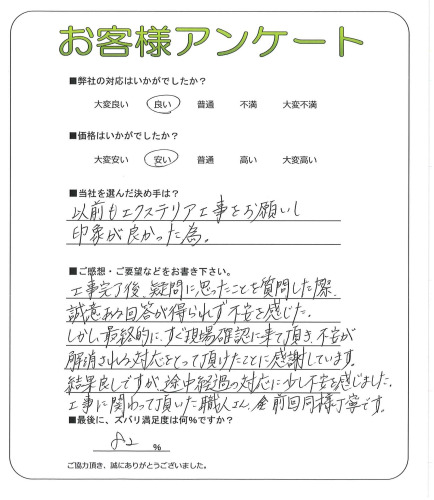 お客様アンケート
■弊社の対応はいかがでしたか?
大変良い 良い 普通 不満 大変不満
■価格はいかがでしたか?
大変安い 安い 普通 高い 大変高い
■当社を選んだ決め手は?
以前もエクステリア工事をお願いし
印象が良かった為。
■ご感想・ご要望などをお書き下さい。
工事完了後、疑問に思ったことを質問した際、
誠意ある回答が得られず不安を感じた。
しかし、最終的に、すぐ現場確認に来て頂き、不安が
解消される対応をとって頂けたことに感謝しています。
結果良しですが、途中経過の対応に少し不安を感じました。
工事に関わって頂いた職人さん、全前回同様丁寧です。
■最後に、ズバリ満足度は何%ですか?
82 %
ご協力頂き、誠にありがとうございました。